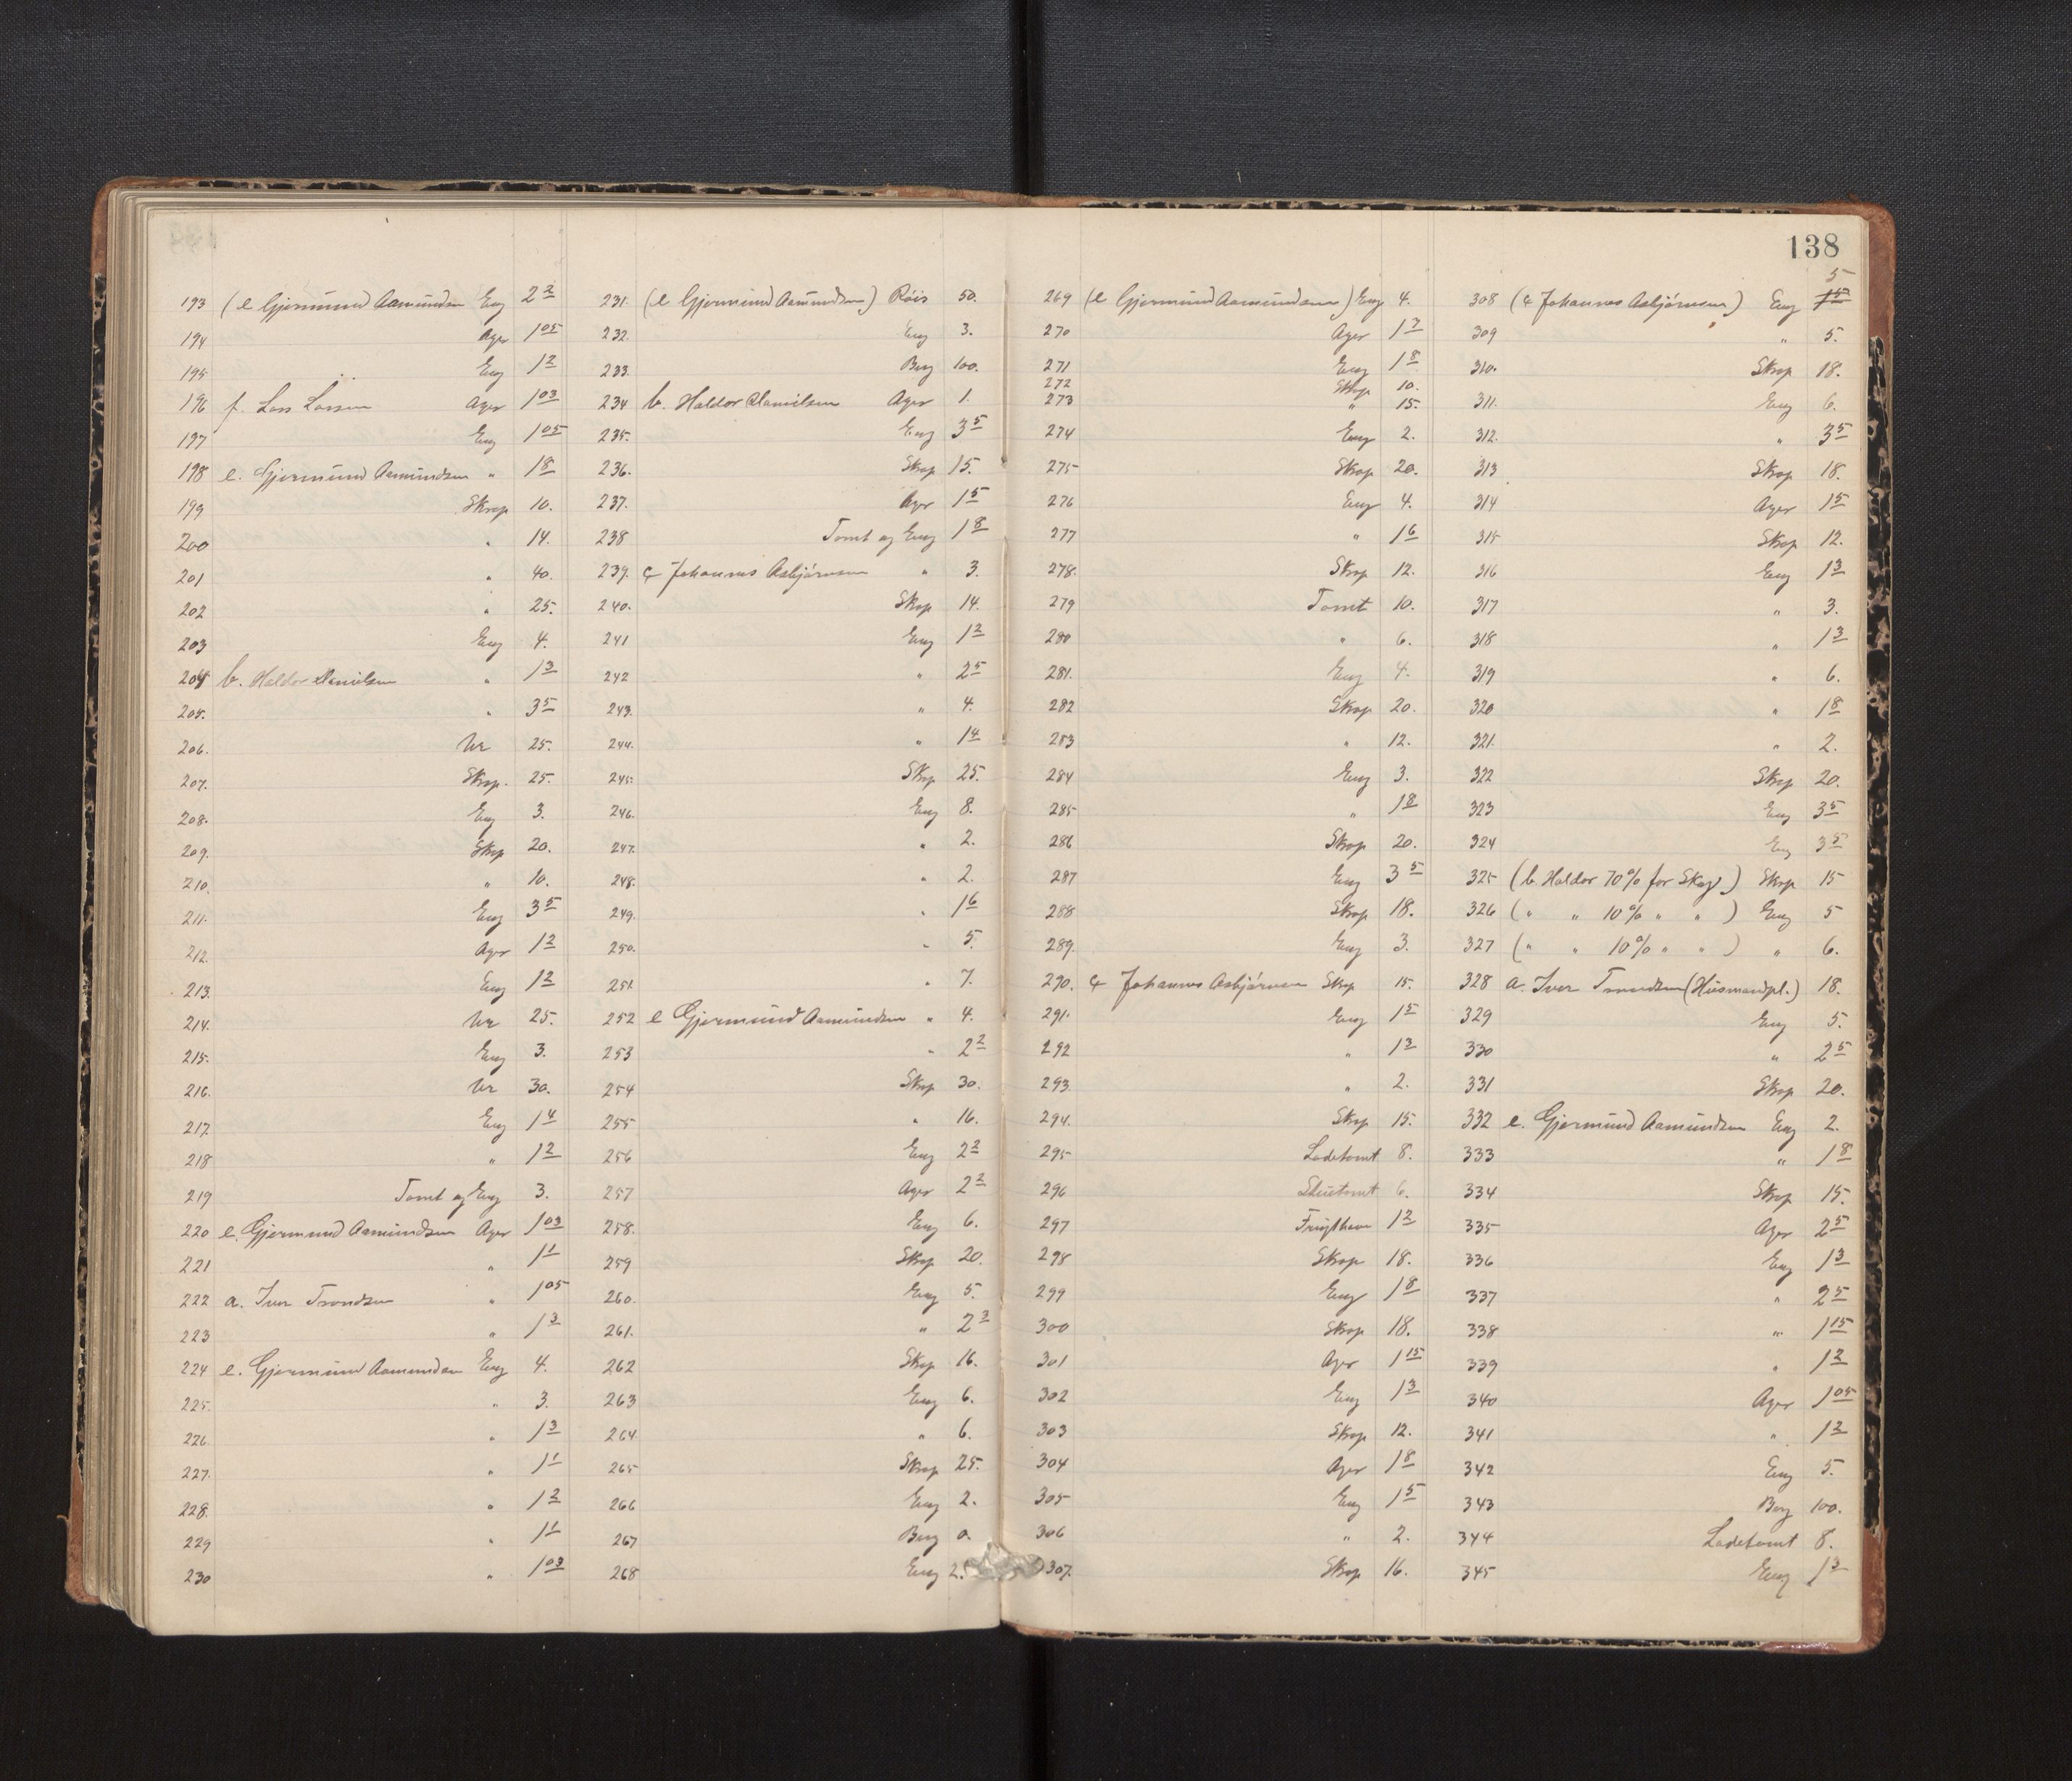 138
193 (e Gjermund Aamundsen Eng 2 2
194 Ager 1 05
195 Eng 1 2
196 f. Lars Larsen Ager 1 03
197 Eng 1 05
198 e. Gjermund Aamundsen " 1 8
199 Skog 10.
200 " 14.
201 " 40.
202 " 25.
203 Eng 4.
204 b. Haldor Danielsen " 1 3
205. " 3 5
206. Ur 25.
207. Skog. 25.
208. Eng 3.
209. Skog 20.
210. " 10.
211. Eng 3 5
212. Ager 1 2
213. Eng 1 2
214. Ur 25.
215. Eng 3.
216. Ur 30.
217. Eng 1 4
218 " 1 2
219 Tomt og Eng 3.
220 e. Gjermund Aamundsen Ager 1 03
221 " 1 1
222 a. Iver Trondsen " 1 05
223 " 1 3
224 e. Gjermund Aamundsen Eng 4.
225. " 3.
226. " 1 3
227. " 1 1
228. " 1 2
229 " 1 1
230 " 1 03
231. (e Gjermund Aamundsen) Röis 50.
232. Eng 3.
233. Berg 100.
234 b. Haldor Danielsen Ager 1.
235. Eng 3 5
236. Skog 15.
237. Ager 1 5
238 Tomt og Eng 1 8
239. c Johannes Asbjørnsen " 3.
240. Skog 14.
241 Eng 1 2
242 " 2 5
243. " 4.
244. " 1 4
245. Skog 25.
246. Eng 8.
247. " 2.
248. " 2.
249. " 1 6
250. " 5.
251. " 7.
252 e Gjermund Aamundsen " 4.
253 " 2 2
254 Skog 30.
255 " 16.
256 Eng 2 2
257 Ager 2 2
258. Eng 6.
259 Skog 20.
260. Eng 5.
261. " 2 3
262 Skog 16.
263 Eng 6.
264 " 6.
265 Skog 25.
266 Eng 2.
267 Berg 0.
268 Eng 2.
269 (e Gjermund Aamundsen) Eng 4.
270 Ager 1 3
271 Eng 1 8
272 Skog 10.
273 " 15.
274 Eng 2.
275 Skog 20.
276 Eng 4.
277 " 1 6
278. Skog 12.
279 Tomt 10.
280 " 6.
281. Eng 4.
282 Skog 20.
283 " 12.
284 Eng 3.
285 " 1 8
286 Skog 20.
287 Eng 3 5
288 Skog 18.
289. Eng 3.
290. c Johannes Asbjørnsen Skog 15.
291. Eng 1 5
292 " 1 3
293. " 2.
294. Skog 15.
295 Ladetomt 8.
296 6.
297 Frugthave 1 2
298 Skog 18.
299 Eng 1 8
300 Skog 18.
301 Ager 1 15
302 Eng 1 3
303 Skog 12.
304 Ager 1 8
305 Eng 1 5
306 " 2.
307. Skog 16.
308 (c Johannes Asbjørnsen) Eng 5
309 " 5.
310. Skog 18.
311. Eng 6.
312. " 3 5
313 Skog 18.
314 Ager 1 5
315 Skog 12.
316 Eng 1 3
317 " 3.
318 " 1 3
319 " 6.
320 " 1 8
321. " 2.
322 Skog 20.
323 Eng 3 5
324 Eng 3 5
325 (b. Haldor 70% for Skog) Skog 15
326 ( " " 10% " " ) Eng 5
327 ( " " 10% " " ) " 6.
328 a. Iver Trondsen (Husmandpl.) 18.
329 Eng 5.
330 " 2 5
331 Skog 20.
332 e. Gjermund Aamundsen Eng 2.
333 " 1 8
334 Skog 15.
335 Ager 2 5
336 Eng 1 3
337 " 2 5
338 " 1 15
339 " 1 2
340 Ager 1 05
341 " 1 2
342 Eng 5.
343 Berg 100.
344 Ladetomt 8.
345 Eng 1 3